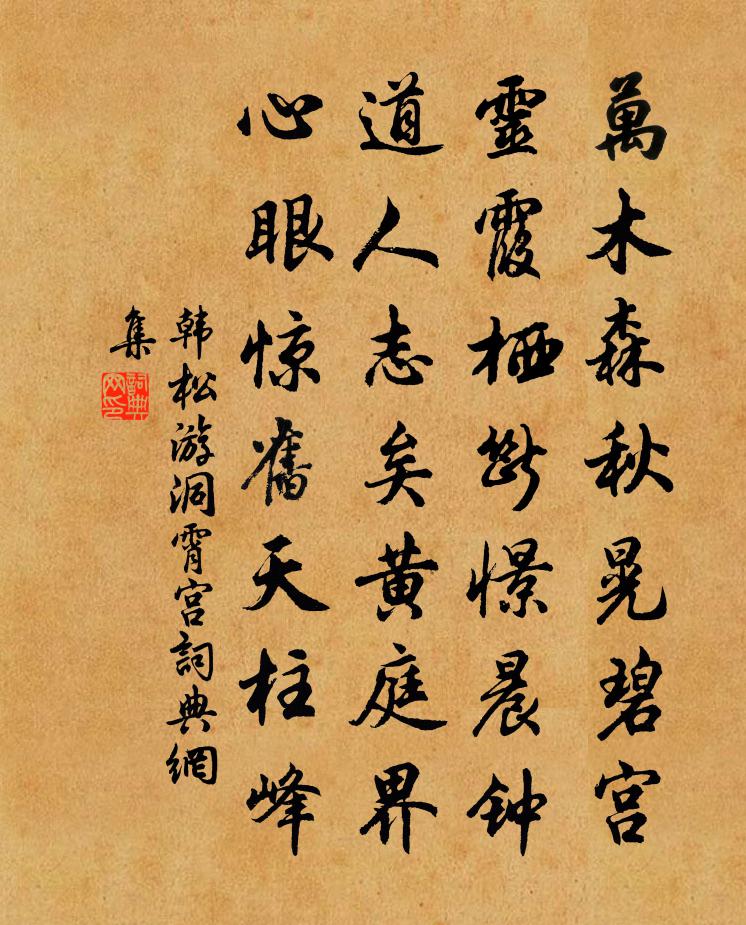 萬木森秋晃碧宫
靈霞栖斷憬晨钟
道人志矣黄庭界
心眼惊舊天柱峰
韩松游洞霄宫詞典網
集
詞典网印